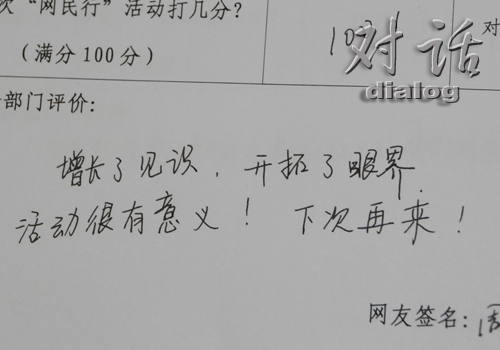 次“网民行”活动打几分？
（满分100分）
对
对话
dialog
部门评价：
增长了见识，开拓了眼界.
活动很有意义！ 下次再来！
网友签名：